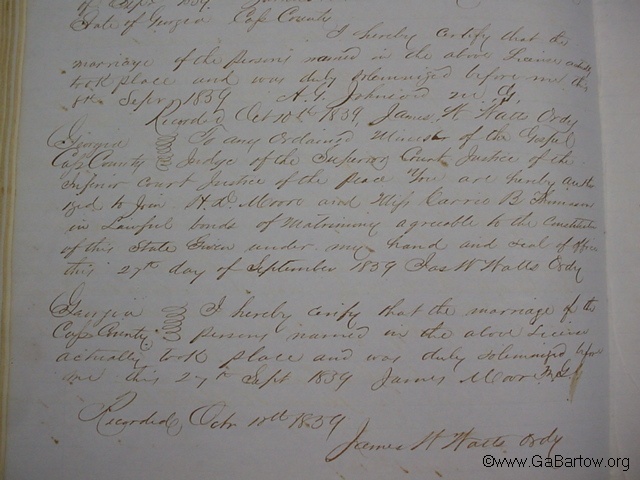 State of Georgia Cass County
I hereby certify that the
marriage of the persons named in the above Licence actually
took place and was duly solemnized before me this
Sept 1859 A. G. Johnson M G
Recorded Oct 10th 1859 James W Watts Ordy
Georgia To any Ordained Minister of the Gospel
Cass County Judge of the Superior Court Justice of the
Inferior court Justice of the peace You are hereby autho
rized to Join Moore and Miss Carrie B
in Lawful bonds of Matrimony agreeable to the Constitution
of this State Given under my hand and seal of office
this 27th day of September 1859 Jas W Watts Ordy
Georgia I hereby certify that the marriage of the
Cass County persons named in the above Licence
actually took place and was duly solemnized before
me this 27th Sept 1859 James Moore
Recorded, Octr 10th 1859
James W Watts Ordy
©www.GaBartow.org